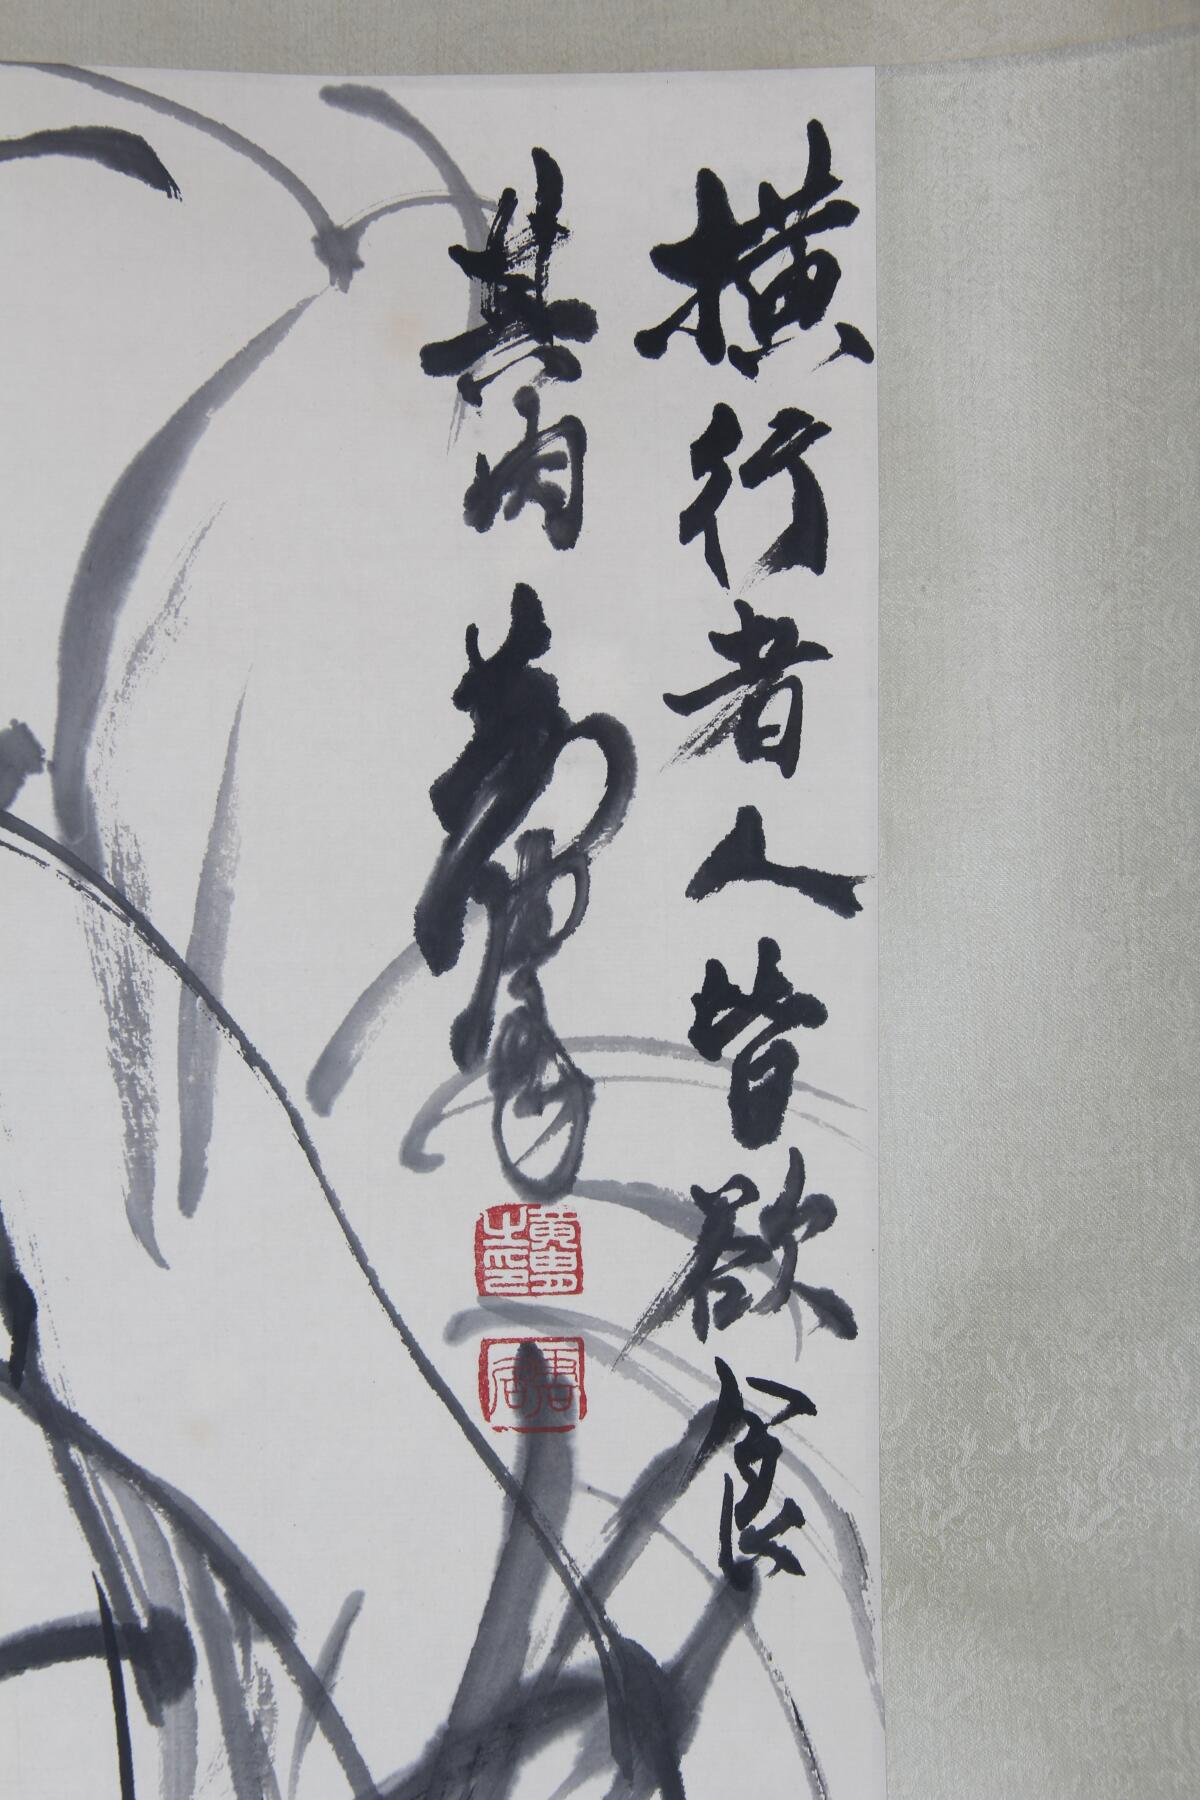 横行者人皆欲食
其肉 黄胄
黄胄之印